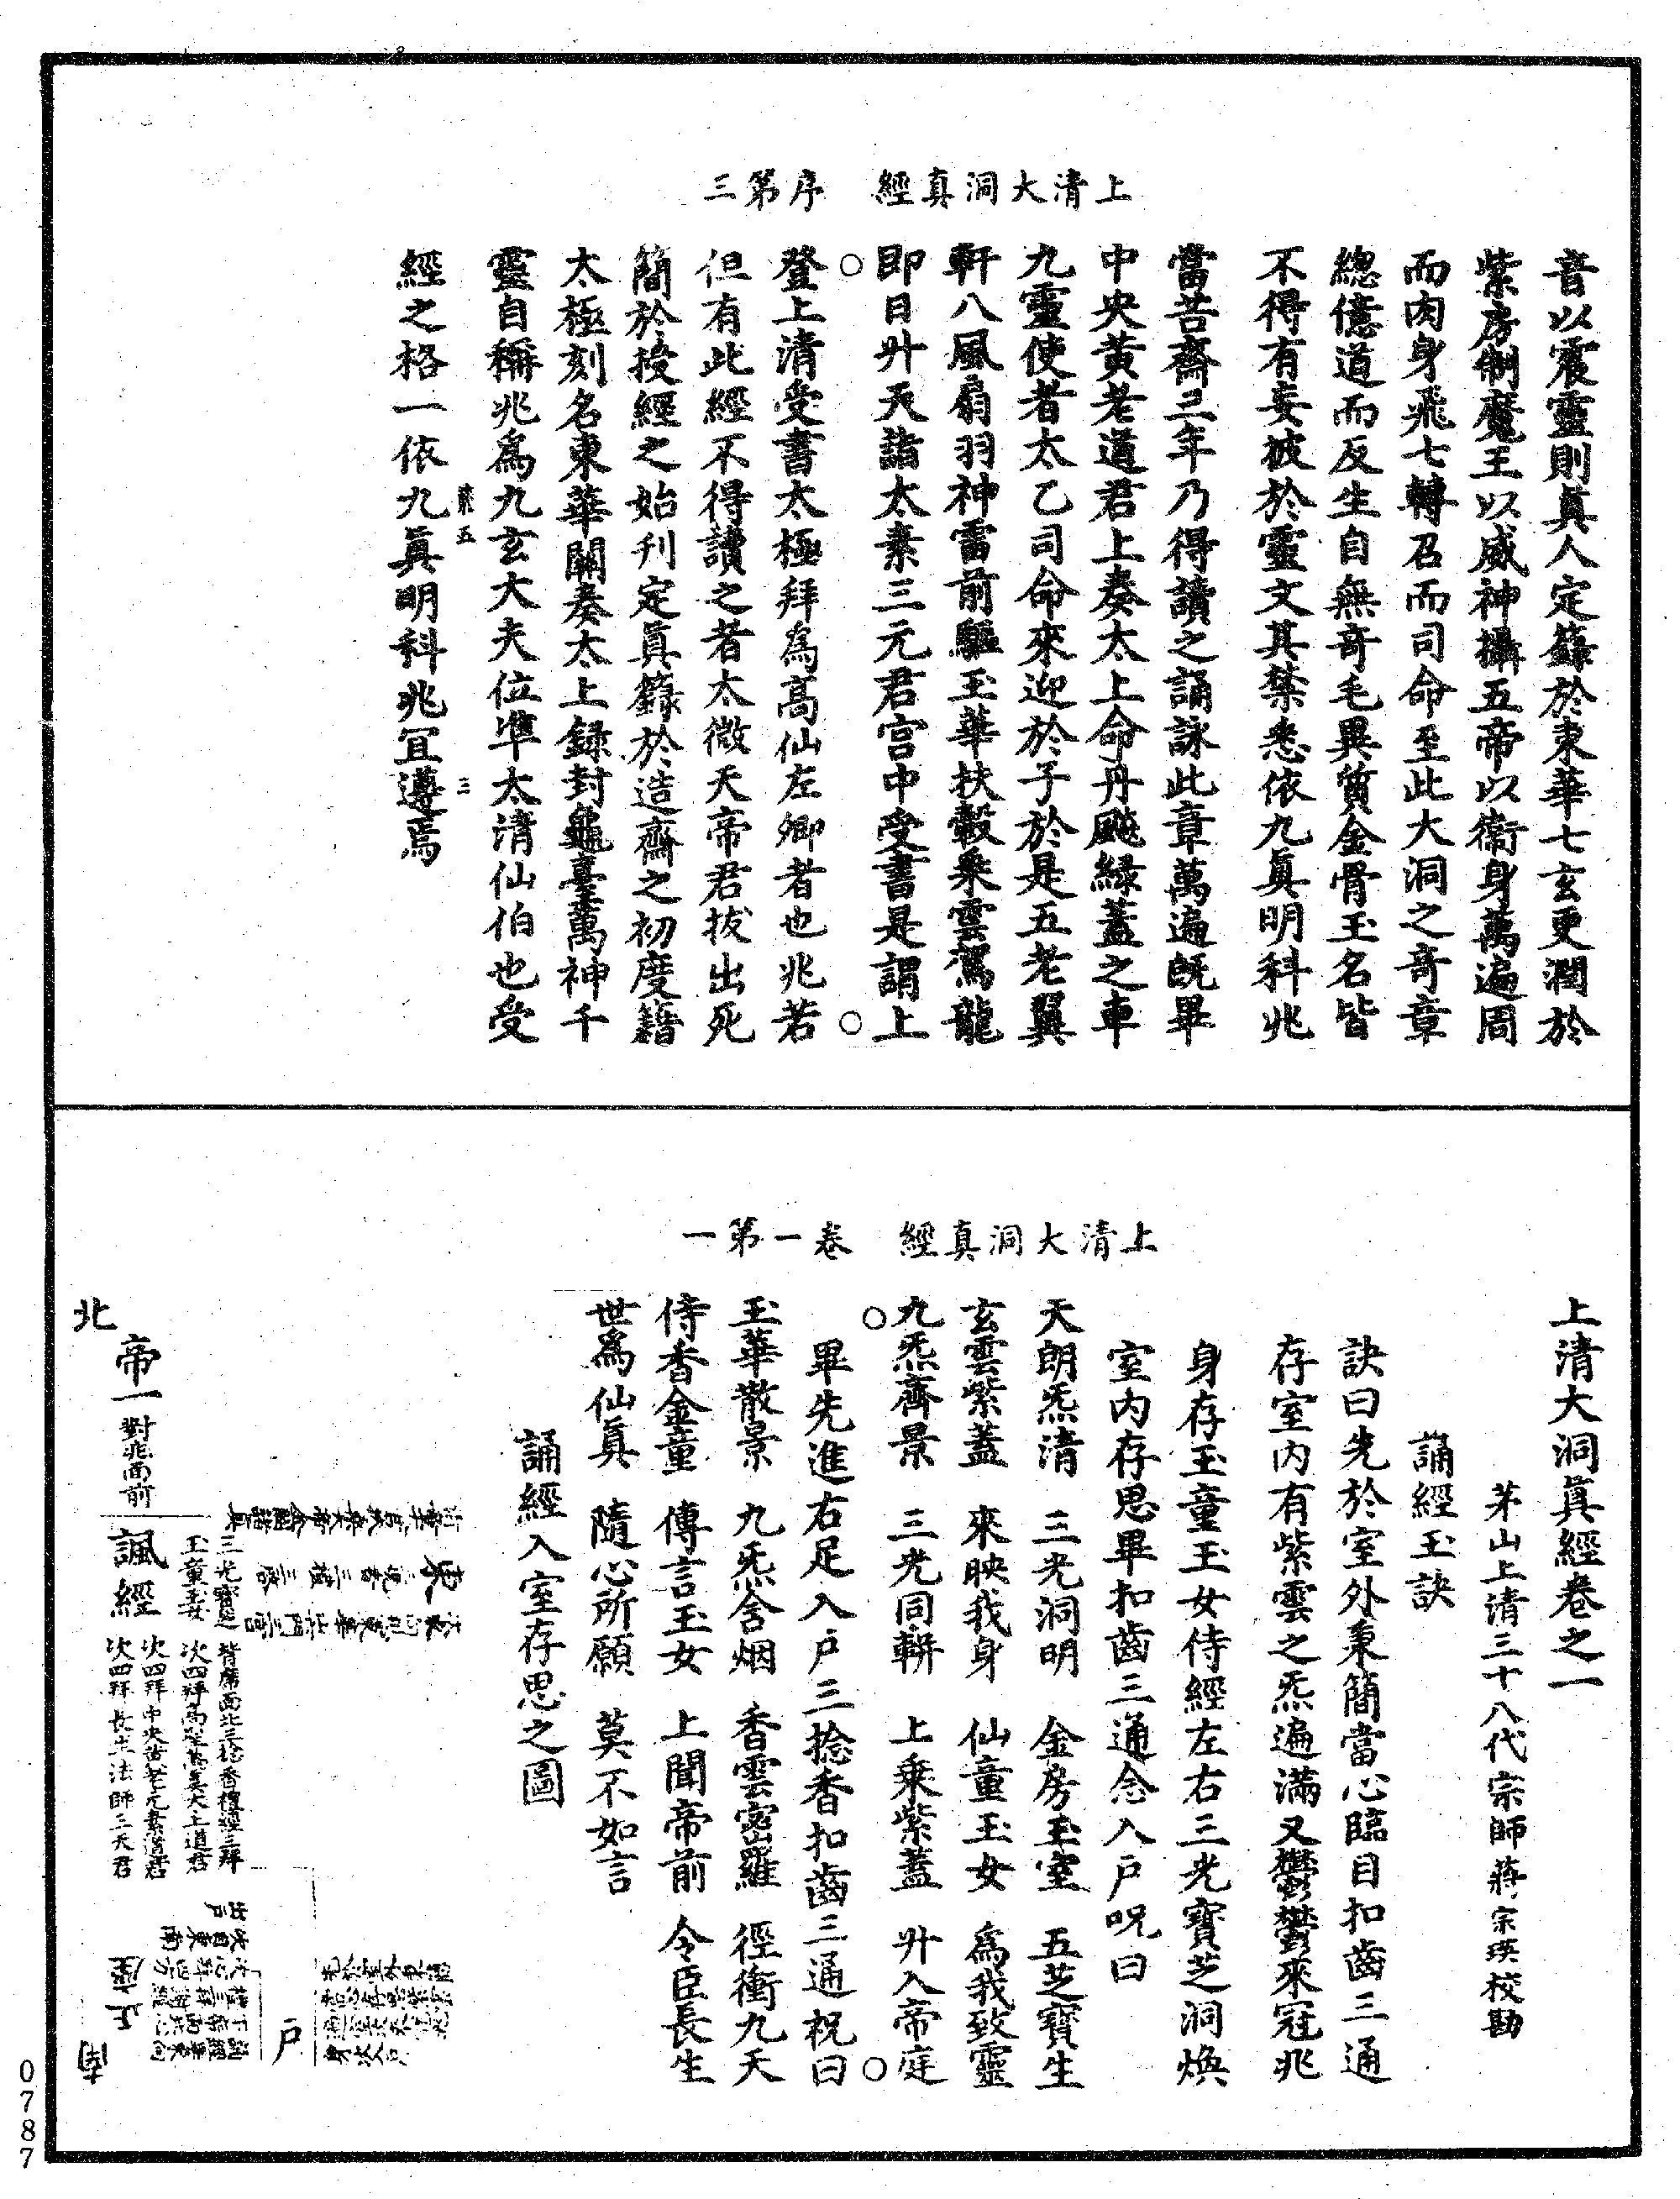 上清大洞真經　序第三
音以震靈則眞人定籙於東華七玄更潤於
紫房制魔王以威神攝五帝以衞身萬遍周
而肉身飛七轉召而司命至此大洞之奇章
總億道而反生自無奇毛異質金骨玉名皆
不得有妄披於靈文其禁悉依九眞明科兆
當苦齋三年乃得讀之誦詠此章萬遍旣畢
中央黄老道君上奏太上命丹飈緑蓋之車
九靈使者太乙司命來迎於子於是五老翼
軒八風扇羽神雷前驅玉華扶轂乗雲駕龍
即日升天詣太素三元君宫中受書是謂上
登上清受書太極拜為髙仙左卿者也兆若
但有此經不得讀之者太微天帝君拔出死
簡於授經之始刋定眞籙於造齋之初度籍
太極刻名東華關奏太上録封龜臺萬神千
靈自稱兆爲九玄大夫位凖太清仙伯也受
經之格一依九眞明科兆冝遵焉
上清大洞真經　卷一第一
上清大洞眞經卷之一
茅山上清三十八代宗師蔣宗瑛校勘
誦經玉訣
訣曰先於室外秉簡當心臨目扣齒三通
存室内有紫雲之炁遍滿又鬱鬱來冠兆
身存玉童玉女侍經左右三光寶芝洞煥
室内存思畢扣齒三通念入户呪曰
天朗炁清　三光洞明　金房玉室　五芝寶生
玄雲紫蓋　來映我身　仙童玉女　爲我致靈
九炁齊景　三光同輧　上乗紫蓋　升入帝庭
畢先進右足入户三捻香扣齒三通祝曰
玉華散景　九炁含烟　香雲密羅　徑衝九天
侍香金童　傳言玉女　上聞帝前　令臣長生
世爲仙眞　隨心所願　莫不如言
誦經入室存思之圖
東
三光寶芝
玉童玉女
皆席面北三捻香禮經三拜
次四拜高聖太眞大上道君
次四拜中央黄老元素道君
次四拜長生法師三天君
户
帝一對兆面前
諷經
北
南
0787